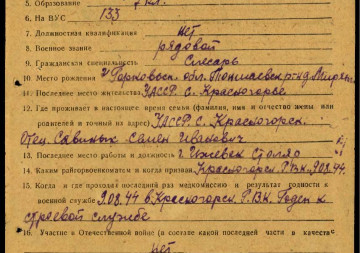 5. Образование 7 кл.
6. На ВУС 133
7. Должностная квалификация нет
8. Военное звание рядовой
9. Гражданская специальность Слесарь
10. Место рождения Горьковск. обл.
11. Последнее место жительства УАССР с. Красногорье
12. Где проживает в настоящее время семья (фамилия, имя и отчество жены или
родителей и точный адрес) УАССР. с. Красногорск.
Отец Савиных Семен Иванович
13. Последнее место работы и должность г. Ижевск
14. Каким райгорвоенкоматом и когда призван Красногорск. РВК. 9.08.44
15. Когда и где проходил последний раз медкомиссию и результат годности к
военной службе 9.08.44 в Красногорск. РВК. Годен к
строевой службе
16. Участие в Отечественной войне (в составе какой последней части в качестве
Нет